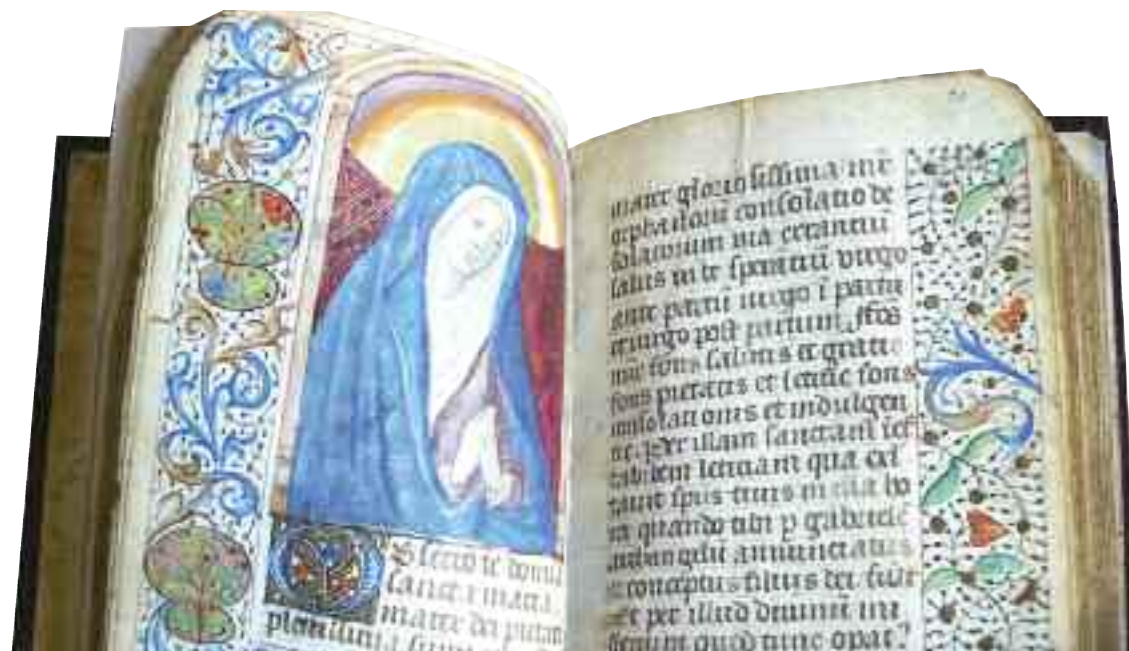 S secro te domi
sancta maria
mater dei pietat
plenissima summi
mater gloriosissima ma
orphanorū consolatio de
solatorium uia erranciū
salus in te sperātiū uirgo
ante partū uirgo ī partu
et uirgo post partum
fons salutis et gratie
fons pietatis et leticie fons
consolationis et indulgen
Per illam sanctam
leticiam qua exl
spūs tuus in illa ho
ra quando tibi p gabriele
archangelū annunciatus
et conceptus filius dei fuit
et per illud diuinū mi
quod tunc opat